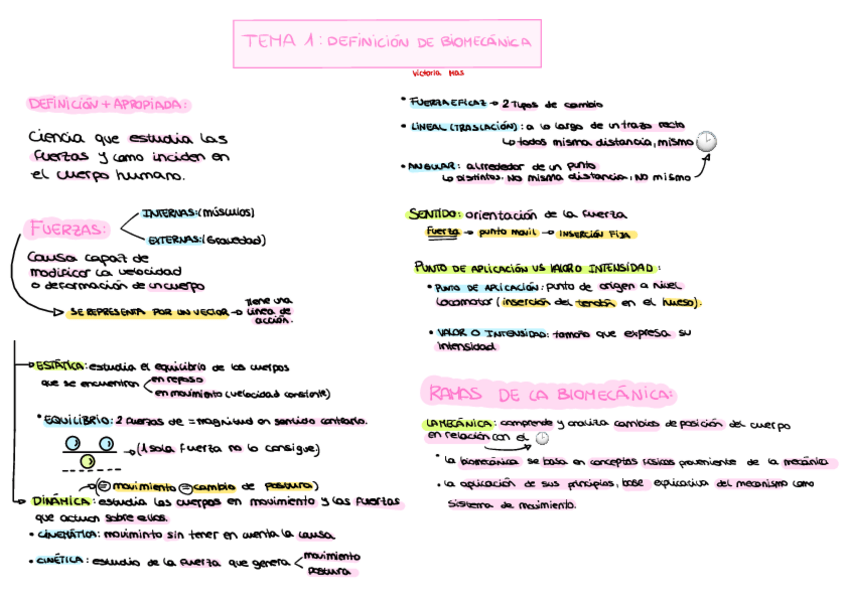 TEMA 1: DEFINICIÓN DE BIOMECÁNICA
Victoria Mas
DEFINICIÓN + APROPIADA:
Ciencia que estudia las
fuerzas y como inciden en
el cuerpo humano.
FUERZAS:
INTERNAS: (músculos)
EXTERNAS: (Gravedad)
Causa capaz de
modificar la velocidad
o deformación de un cuerpo
SE REPRESENTA POR UN VECTOR → Tiene una
línea de
acción.
ESTÁTICA: estudia el equilibrio de los cuerpos
que se encuentran
en reposo
en movimiento (velocidad constante)
• EQUILIBRIO: 2 fuerzas de = magnitud en sentido contrario.
→ (1 sola fuerza no lo consigue)
→ (= movimiento = cambio de postura)
DINÁMICA: estudia los cuerpos en movimiento y las fuerzas
que actúan sobre ellos.
• CINEMÁTICA: movimiento sin tener en cuenta la causa
• CINÉTICA: estudio de la fuerza que genera
movimiento
postura
• FUERZA EFICAZ → 2 tipos de cambio
• LINEAL (TRASLACIÓN): a lo largo de un trazo recto
↳ todos misma distancia, mismo
• ANGULAR: alrededor de un punto
↳ Distintos. No misma distancia, NO mismo
SENTIDO: orientación de la fuerza
Fuerza → punto movil → INSERCIÓN FIJA
PUNTO DE APLICACIÓN VS VALOR O INTENSIDAD:
• PUNTO DE APLICACIÓN: punto de origen a nivel
locomotor (inserción del tendón en el hueso).
• VALOR O INTENSIDAD: tamaño que expresa su
intensidad
RAMAS DE LA BIOMECÁNICA:
LA MECÁNICA: comprende y analiza cambios de posición del cuerpo
en relación con el
• La biomecánica se basa en conceptos físicos proveniente de la mecánica
• La aplicación de sus principios, base explicativa del mecanismo como
sistema de movimiento.